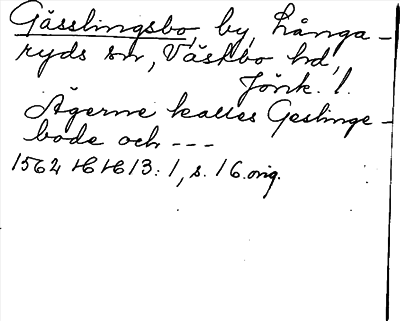 Gässlingsbo, by, Långa-
ryds sn, Västbo hd,
Jönk. l.
Ägerne kalles Geslinge-
bode och ---
1562 HH 13:1, s. 16. orig.